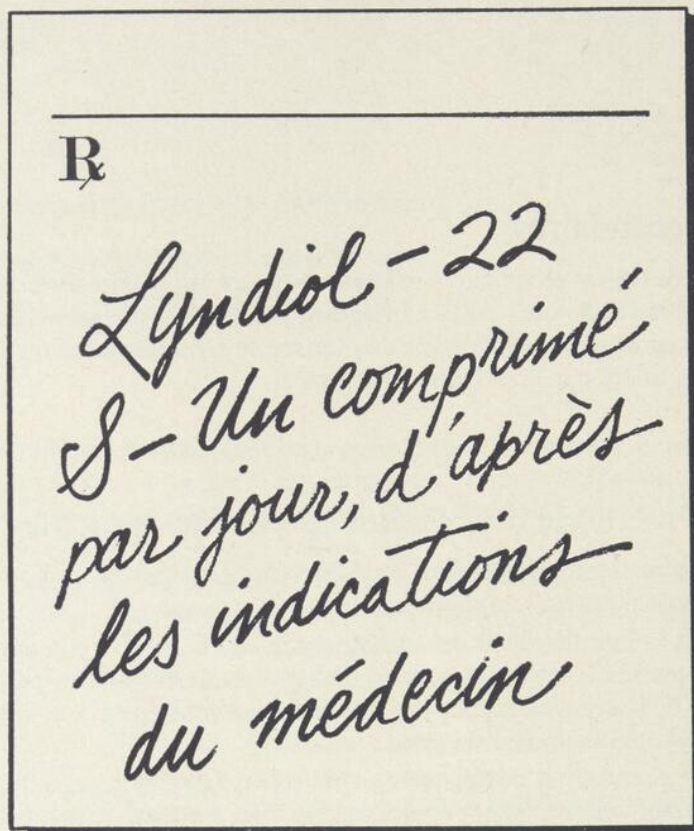 ℞
Lyndiol - 22
S - Un comprimé
par jour, d'après
les indications
du médecin